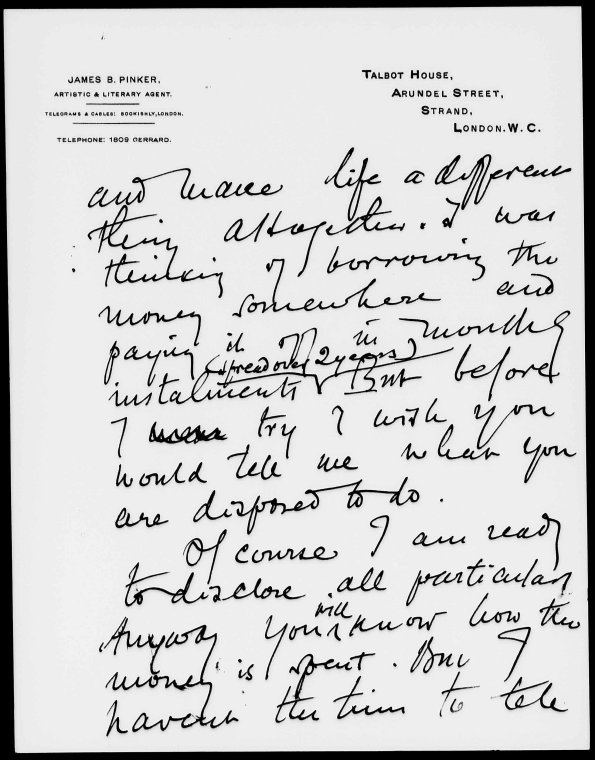 JAMES B. PINKER,
ARTISTIC & LITERARY AGENT.
TELEGRAMS & CABLES: BOOKISHLY, LONDON.
TELEPHONE: 1809 GERRARD.
TALBOT HOUSE,
ARUNDEL STREET,
STRAND,
LONDON. W. C.
and make life a different
thing altogether. I was
thinking of borrowing the
money somewhere and
paying it off in monthly
(spread over 2 years)
instalments. But before
I try I wish you
would tell me what you
are disposed to do.
Of course I am ready
to disclose all particulars
Anyway you will know how the
money is spent. But I
havent the time to tell